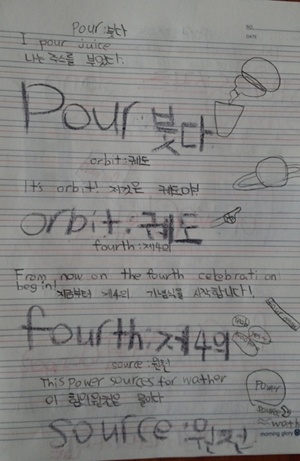 Pour:붓다
I pour juice
나는 주스를 부었다.
Pour:붓다
orbit:궤도
It's orbit! 저것은 궤도야
orbit:궤도
fourth:제4의
From now on the fourth celebration
begin! 지금부터 제4의 기념식을 시작합니다!
fourth:제4의
source:원천
This Power sources for wather
이 힘의원천은 물이다
Power
source:원천